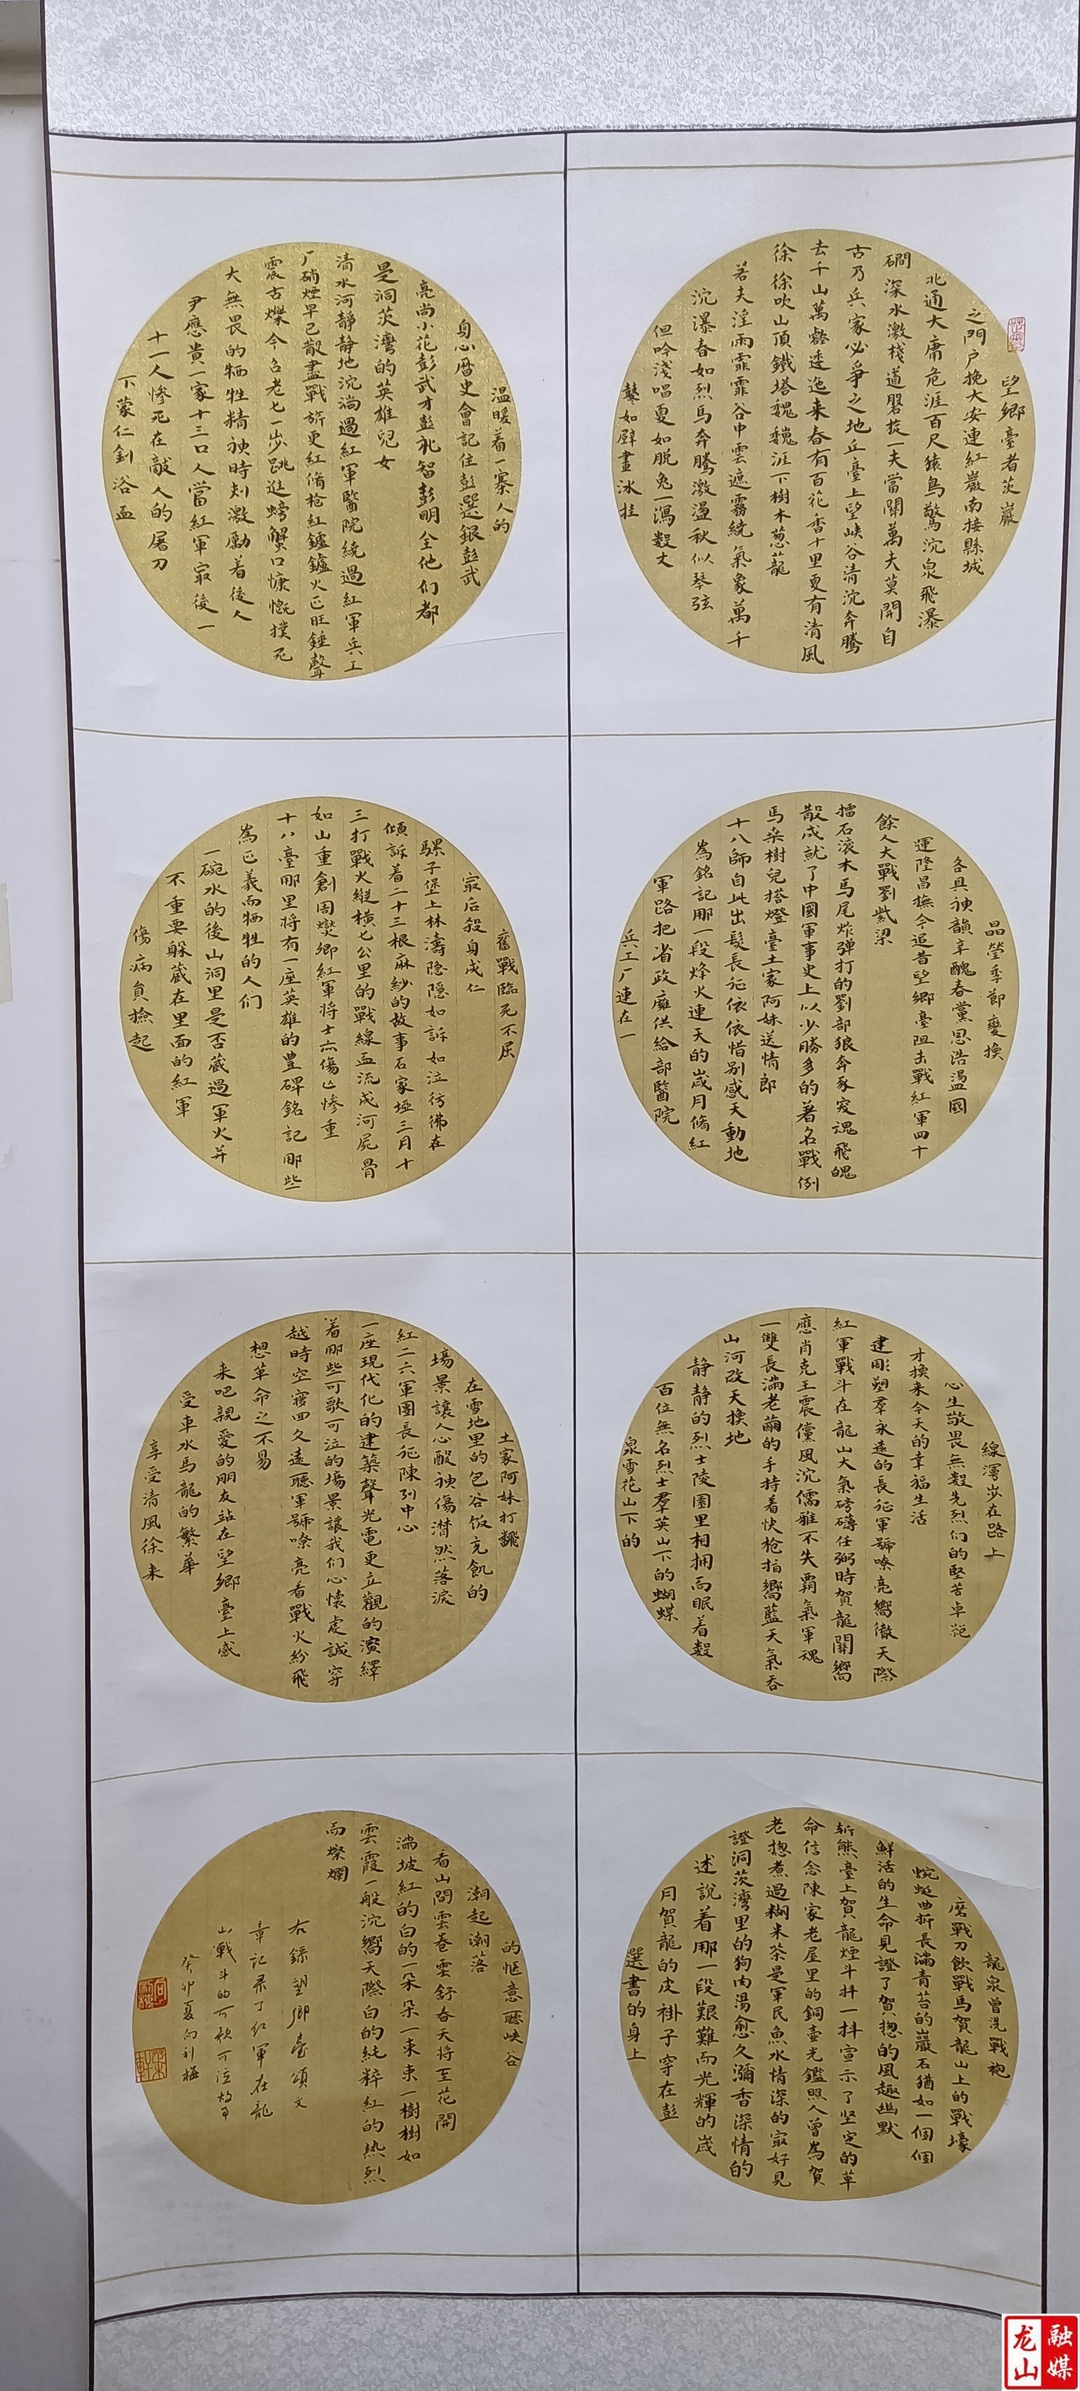 望鄉臺者茨巖
之門户挽大安連紅巖南接縣城
北通大庸危涯百尺猿鳥驚流泉飛瀑
磵深水激棧道磐旋一夫當關萬夫莫開自
古乃兵家必爭之地丘臺上望峽谷清流奔騰
去千山萬壑逶迤来春有百花香十里夏有清風
徐徐吹山頂鐵塔巍巍涯下樹木葱蘢
若夫淫雨霏霏谷中雲遮霧繞氣象萬千
流瀑春如烈馬奔騰激盪秋似琴弦
但吟淺唱夏如脱兔一瀉數丈
鼕如壁畫冰挂
晶瑩季節變換
各具神韻辛醜春黨恩浩盪國
運隆昌撫今追昔望鄉臺阻击戰紅軍四十
餘人大戰劉紫梁
擂石滚木馬尾炸彈打的劉部狼奔豕突魂飛魄
散成就了中國軍事史上以少勝多的著名戰例
馬桑樹兒搭燈臺土家阿妹送情郎
十八師自此出髮長征依依惜别感天動地
為銘記那一段烽火連天的歲月脩紅
軍路把省政府供给部醫院
兵工厂連在一
線漫步在路上
心生敬畏無數先烈们的堅苦卓絶
才换来今天的幸福生活
建彫塑羣永遠的長征軍號嘹亮嚮徹天際
紅軍戰斗在龍山大氣磅礴任弼時賀龍關嚮
應肖克王震儻風流儒雅不失霸氣軍魂
一雙長滿老繭的手持着快槍指嚮藍天氣吞
山河改天换地
静静的烈士陵園里相拥而眠着數
百位無名烈士羣英山下的蝴蝶
泉雪花山下的
龍泉曾洗戰袍
磨戰刀飲戰馬賀龍山上的戰壕
蜿蜒曲折長滿青苔的巖石猶如一個個
鮮活的生命見證了賀揔的風趣幽默
斬熊臺上賀龍煙斗抖一抖宣示了坚定的革
命信念陳家老屋里的銅壺光鑑照人曾為賀
老揔煮過糊米茶是軍民魚水情深的最好見
證洞茨灣里的狗肉湯愈久瀰香深情的
述說着那一段艱難而光輝的歲
月賀龍的皮褂子穿在彭
選書的身上
温暖着一寨人的
身心曆史會記住彭選銀彭武
亮尚小花彭武才彭礼智彭明全他们都
是洞茨灣的英雄兒女
清水河静静地流淌過紅軍醫院绕過紅軍兵工
厂硝煙早已散盡戰旂更紅脩枪紅鑪鑪火正旺錘聲
震古爍今彭老七一步跳進螃蟹口慷慨撲死
大無畏的牺牲精神時刻激勵着後人
尹應貴一家十三口人當紅軍最後一
十一人慘死在敵人的屠刀
下蒙仁釗浴血
舊戰臨死不屈
最后殺身成仁
騾子堡上林濤隐隐如訴如泣彷彿在
傾訴着二十三根麻紗的故事石家埡三月十
三打戰火縱横七公里的戰線血流成河屍骨
如山重創周燮卿紅軍將士亦傷亡惨重
十八臺那里将有一座英雄的豊碑銘記那些
為正義而牺牲的人们
一碗水的後山洞里是否藏過軍火并
不重要躲藏在里面的紅軍
傷病員撿起
土家阿妹打鬷
在雪地里的包谷饭充飢的
場景讓人心酸神傷潸然落淚
紅二六軍團長征陳列中心
一座現代化的建築聲光電更立觀的演繹
着那些可歌可泣的場景讓我们心懷虔誠穿
越時空窹回久遠聽軍號嘹亮看戰火紛飛
想革命之不易
来吧親愛的朋友站在望鄉臺上感
受車水馬龍的繁華
享受清風徐来
的惬意聽峽谷
潮起潮落
看山間雲卷雲舒春天將至花開
滿坡紅的白的一朵朵一束束一樹樹如
雲霞一般流嚮天際白的純粹紅的热烈
而燦爛
右録望鄉臺頌文
章記录了红軍在龍
山戰斗的可歌可泣故事
癸卯夏向利梅
龙山
融媒